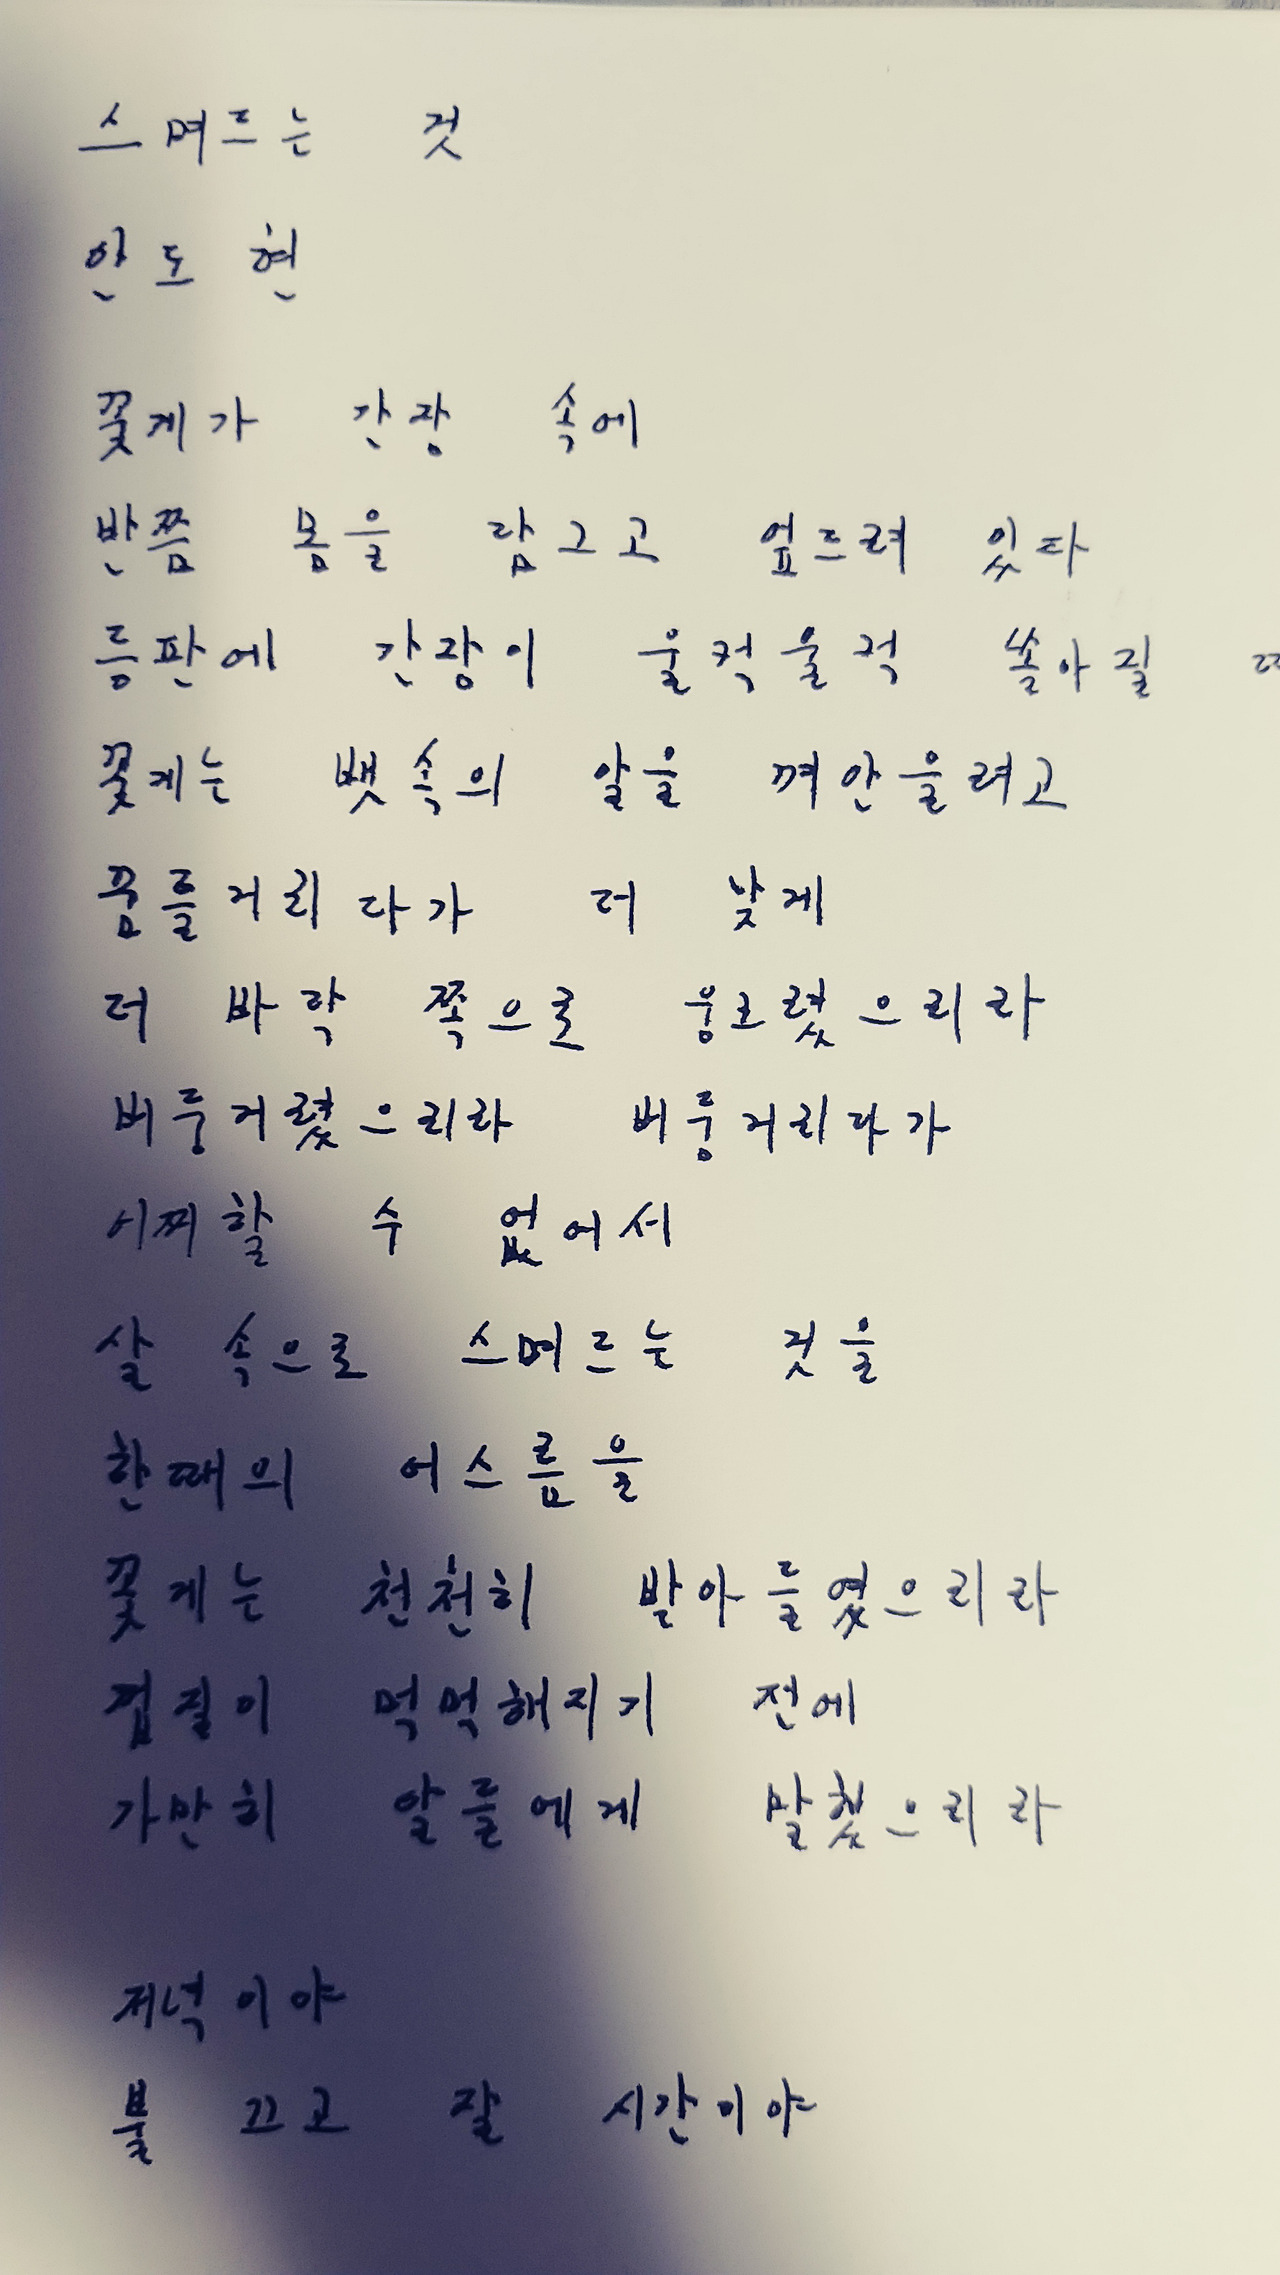 스며드는 것
안도현
꽃게가 간장 속에
반쯤 몸을 담그고 엎드려 있다
등판에 간장이 울컥울컥 쏟아질
꽃게는 뱃속의 알을 껴안을려고
꿈틀거리다가 더 낮게
더 바닥 쪽으로 웅크렸으리라
버둥거렸으리라 버둥거리다가
어찌할 수 없어서
살 속으로 스며드는 것을
한때의 어스름을
꽃게는 천천히 받아들였으리라
껍질이 먹먹해지기 전에
가만히 알들에게 말했으리라
저녁이야
불 끄고 잘 시간이야